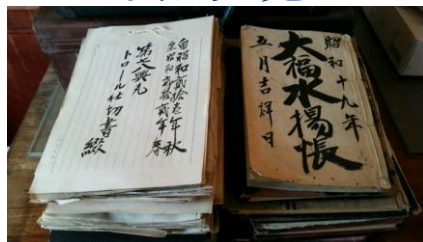 自昭和貳拾壱年秋
至昭和貳拾貳年春
トロール仕切書
綴
昭和十九年
大福水揚帳
五月吉祥日